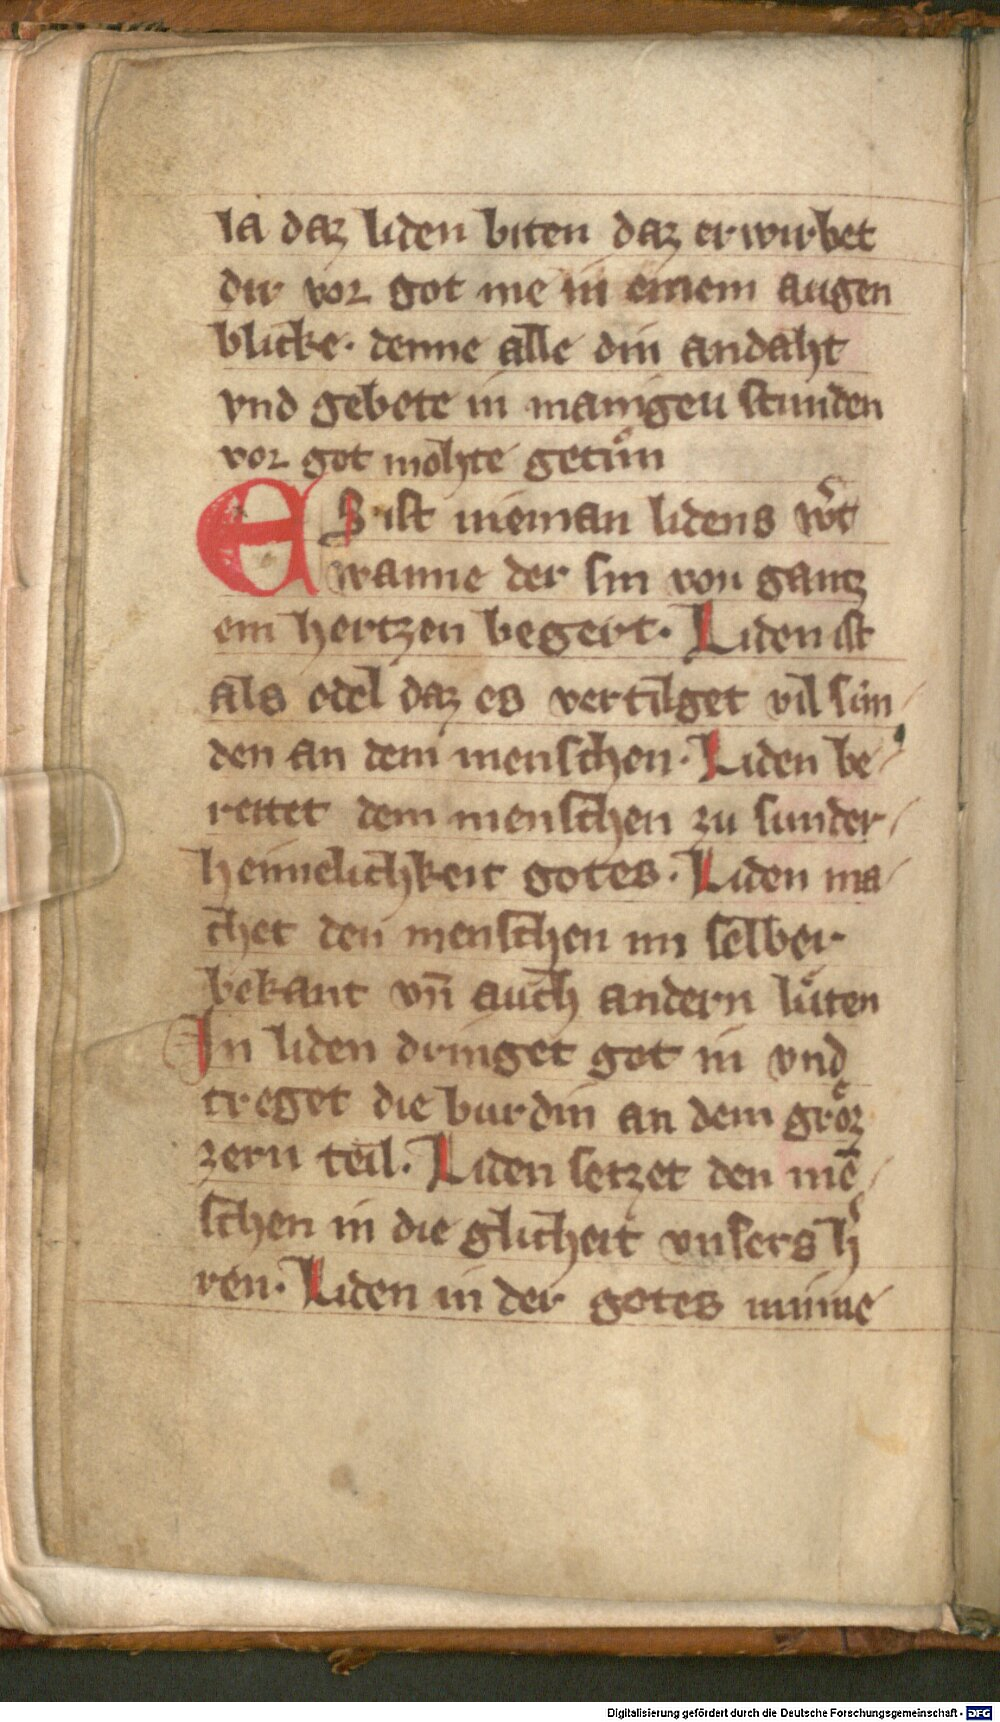 la daz liden biten daz erwirbet
dir vor got me in einem augen
blicke· denne alle din andaht
vnd gebete in manigen stunden
vor got mohte getuͦn
ES ist nieman lidens wͬt
wanne der sin von gantz
em hertzen begert· Liden ist
als edel daz es vertilget vil sún
den an dem menschen· Liden be
reitet dem menschen zu sunder
heimelichkeit gotes· Liden ma
chet den menschen im selber
bekant vn̄ auch andern luͤten
In liden dringet got in vnd
treget die burdin an dem groͤz
zern teil· Liden setzet den mē
schen in die glicheit vnsers hͬ
ren· Liden in der gotes minne
Digitalisierung gefördert durch die Deutsche Forschungsgemeinschaft - DFG